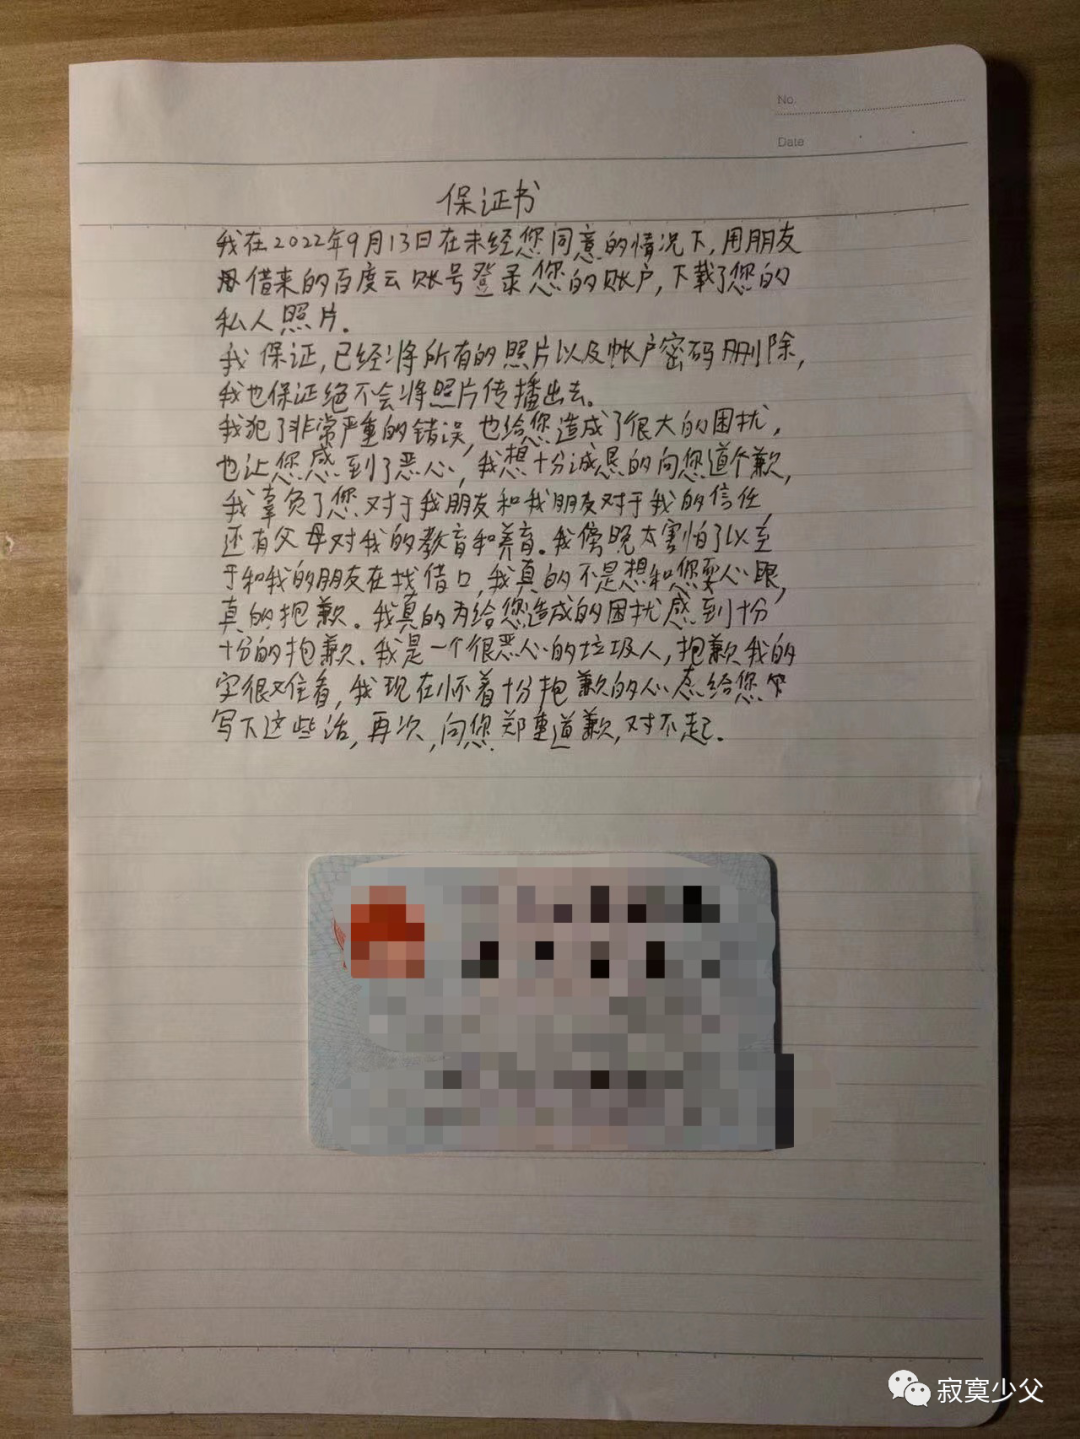 No.
Date
保证书
我在2022年9月13日在未经您同意的情况下,用朋友
借来的百度云账号登录您的账户,下载了您的
私人照片.
我保证,已经将所有的照片以及帐户密码删除,
我也保证绝不会将照片传播出去。
我犯了非常严重的错误,也给您造成了很大的困扰,
也让您感到了恶心,我想十分诚恳的向您道个歉,
我辜负了您对于我朋友和我朋友对于我的信任
还有父母对我的教育和养育。我傍晚太害怕了以至
于和我的朋友在找借口,我真的不是想和您耍心眼,
真的抱歉。我真的为给您造成的困扰感到十分
十分的抱歉.我是一个很恶心的垃圾人,抱歉我的
字很难看,我现在怀着十分抱歉的心态给您
写下这些话,再次,向您郑重道歉,对不起.
寂寞少父